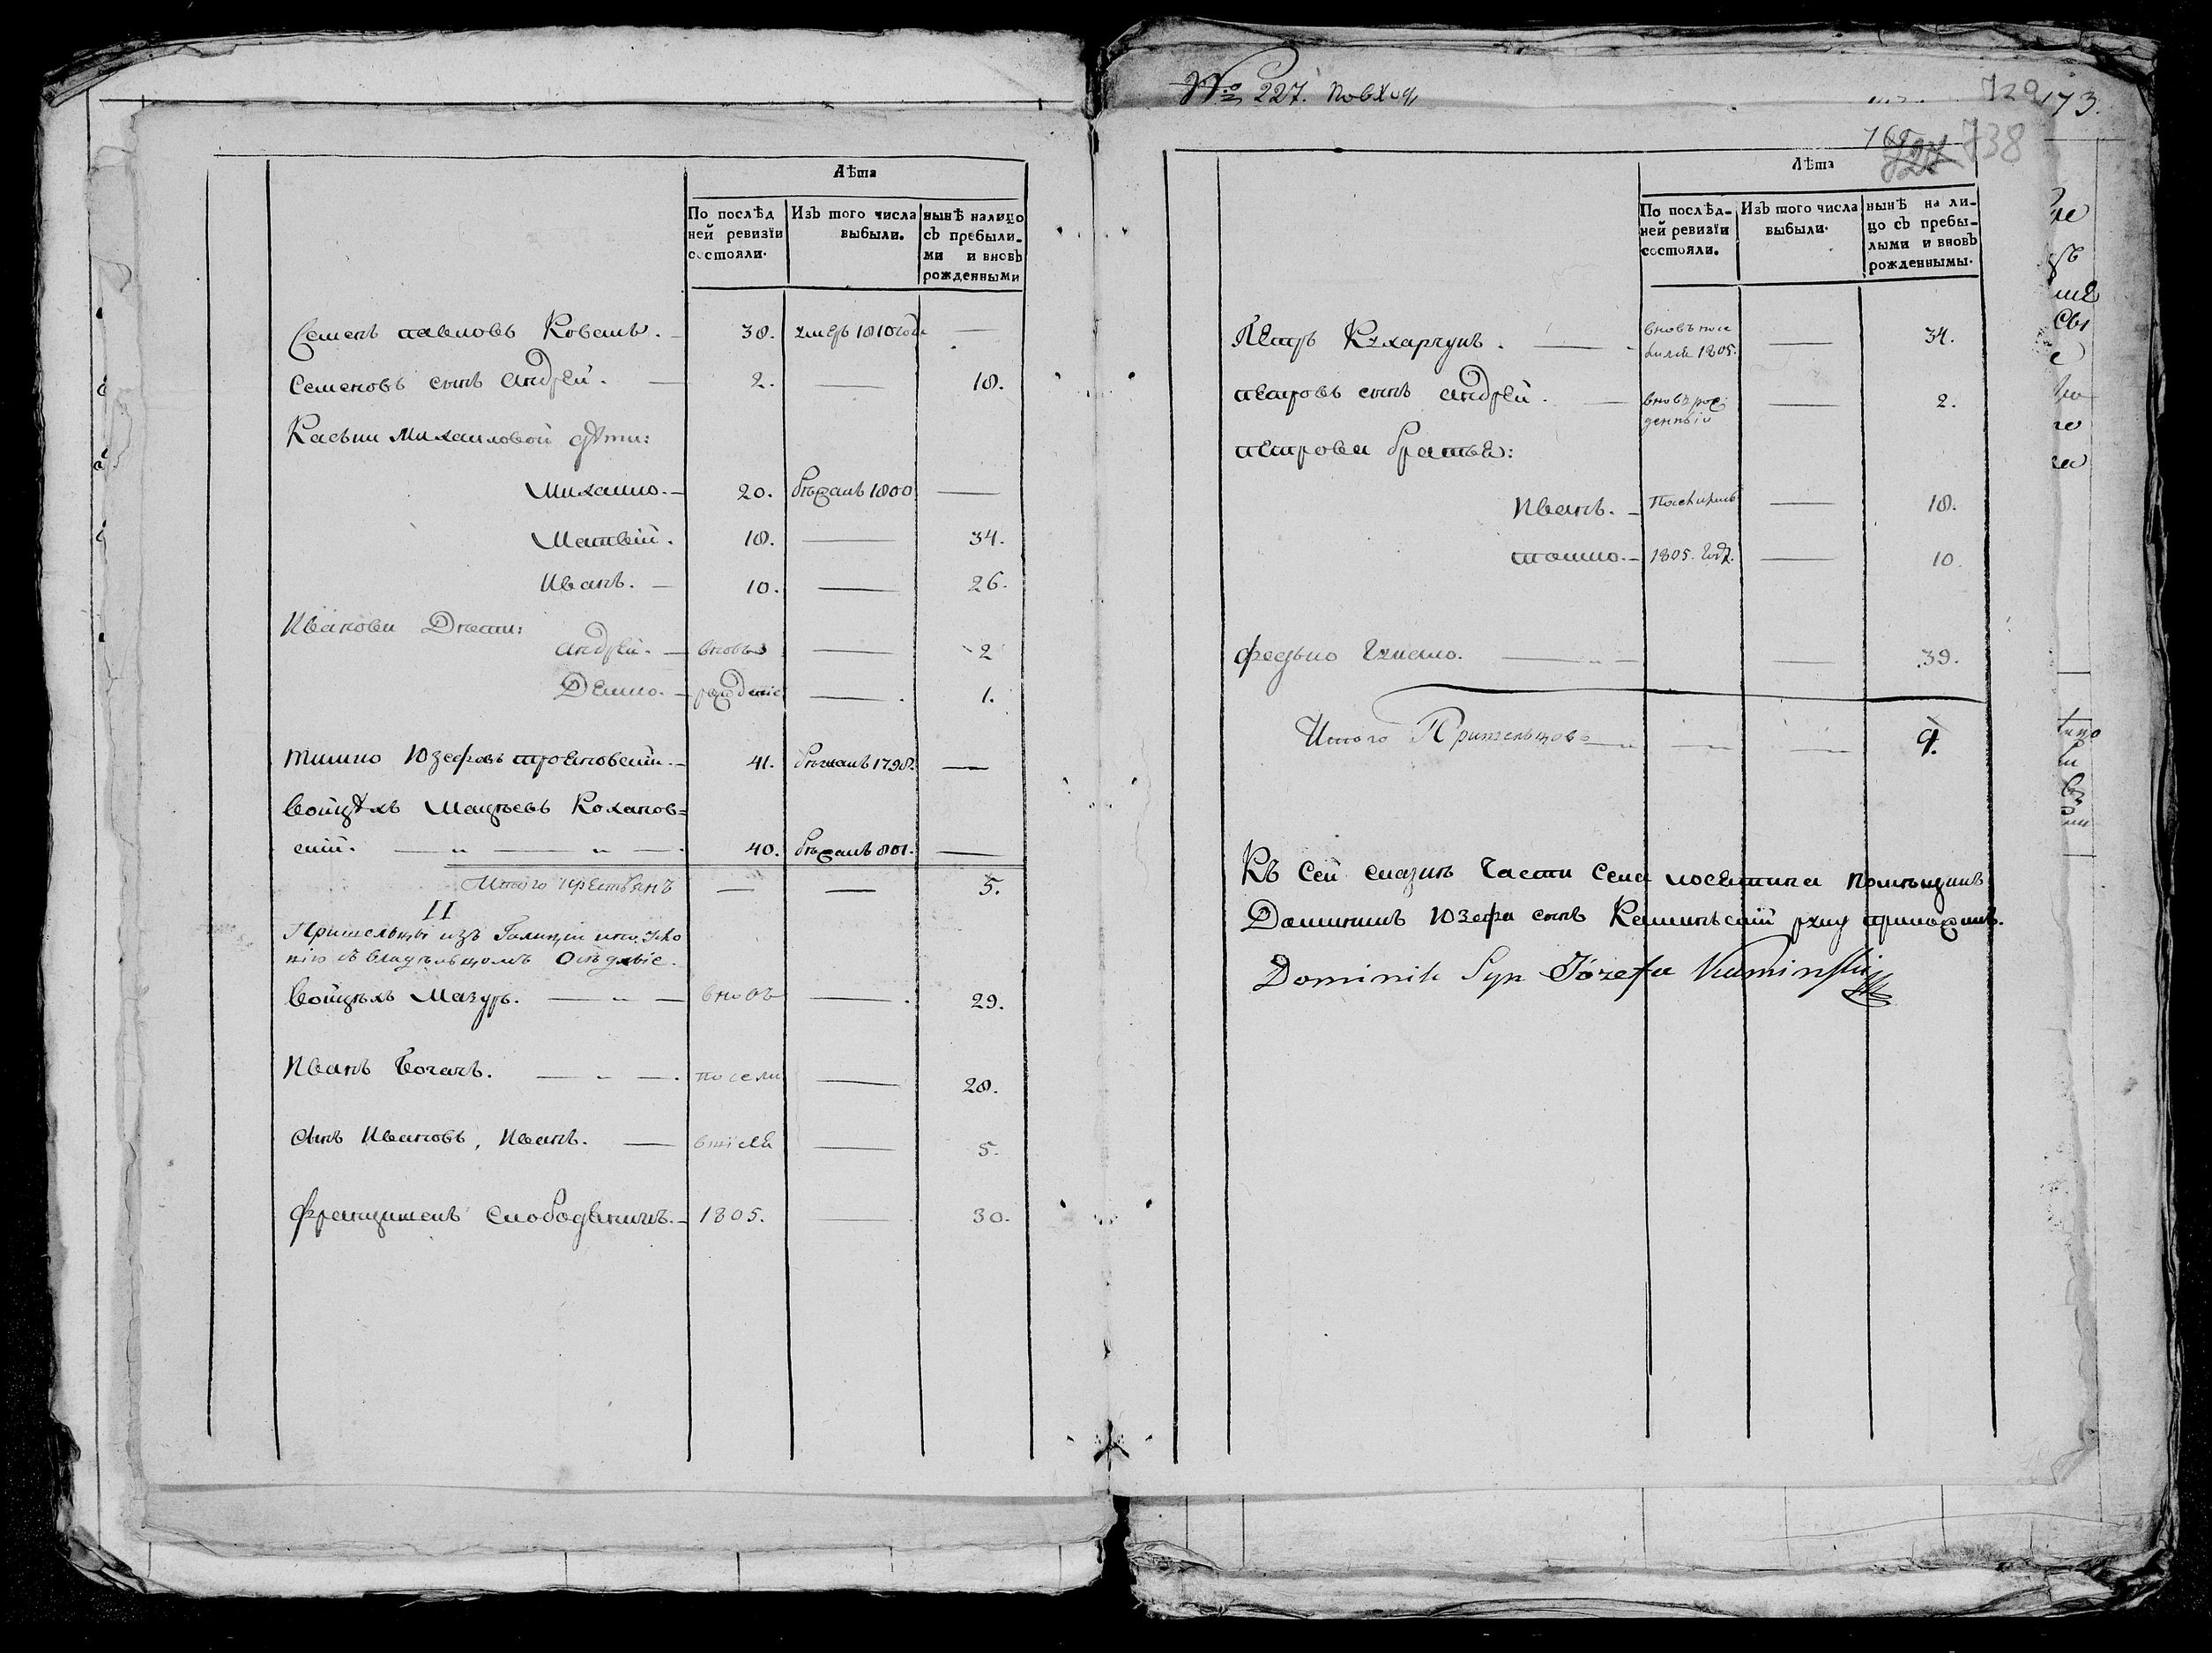 Лѣта
По послѣд ней ревизїи состояли. Изъ того числа выбыли. нынѣ налицо съ пребылими и вновь рожденными
Семенъ павловъ Коваль. — 38. умеръ 1810 года —
Семеновъ сынъ андрей. — 2. — 18.
Каськи Михаиловой дѣти:
Михайло. — 20. бѣжалъ 1800 —
Матвѣй. 18. — 34.
Иванъ. — 10. — 26.
Ивановы Дѣти:
андрей. — вновь — 2
Демко. — рожденіе — 1.
тимко Юзефовъ трояновскій. — 41. бѣжалъ 1798. —
Войцѣхъ Мацѣевъ Коханов=
скій. — „ — „ — 40. бѣжалъ 801. —
Итого крестьянъ — — 5.
II
Пришельцы изъ Галиціи
съ владѣльцомъ
Войцѣхъ Мазуръ. — „ — вновь — 29.
Иванъ Богачъ. — „ — посели 28.
сынъ Ивановъ, Иванъ. — — 5.
Францишекъ слободяникъ. — 1805. — 30.
№ 227. по вход
729 173.
738
Лѣта
По послѣд-ней ревизїи состояли. Изъ того числа выбыли. нынѣ на ли-цо съ пребы-лыми и вновь рожденнымы.
Пётръ Кухарчукъ. — вновь посе 34.
лился 1805. —
петровъ сынъ андрей. — вновь рож 2.
денный —
петровы братья:
Иванъ. — Поселились — 18.
томко. — 1805. год. — 10.
федько — „ — — 39.
Итого Пришельцовъ — „ — „ — „ 9.
Къ Сей сказки Части Села помѣщикъ
Доминикъ Юзефа сынъ Каминьскій руку приложилъ.
Dominik Syn Józefa Kaminski